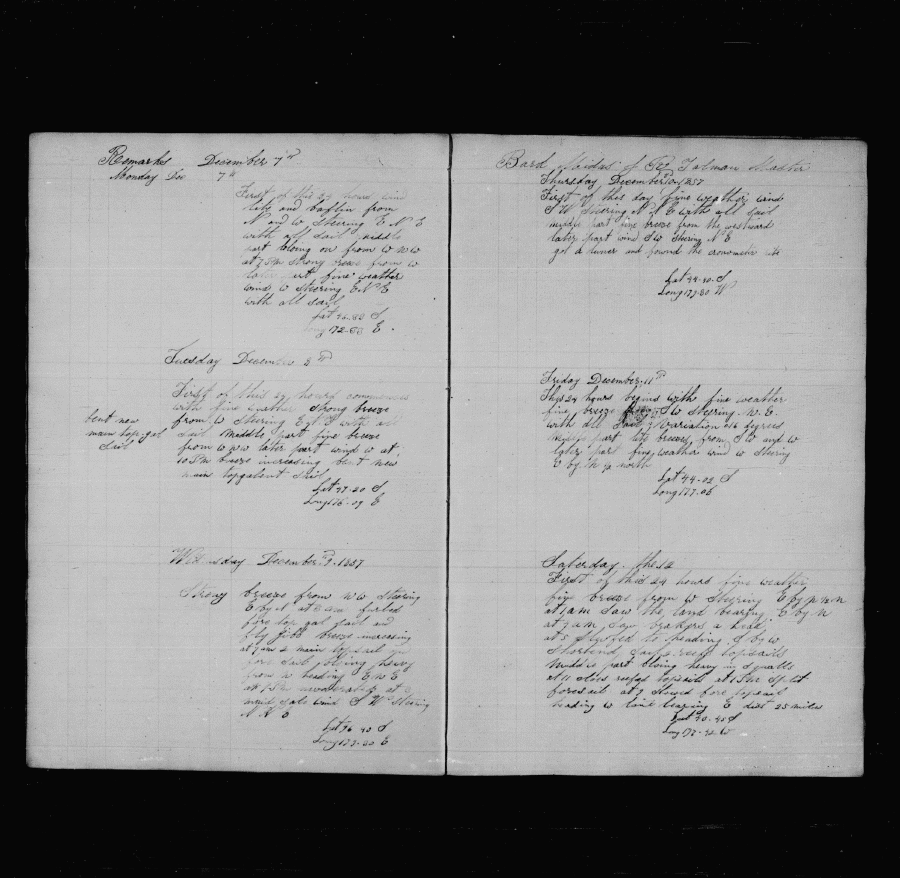 Remarks December 7th
Monday Dec 7th
First of this 24 hours wind
late and bafflin from
N and W Steering E N E
with all Sail middle
part bloing on from W N W
at 7 PM strong from W
later part fine weather
wind W Steering E N E
with all sail
Lat S
Long 72 E.
Tuesday December 8th
First of this 24 hours commences
with fine weather strong breeze
from W Steering E with all
Sail middle part fine breeze
from W N W later part wind W at
10 PM breeze increasing bent new
main topgalent Sail
bent new
main top-gal
Sail
Lat 47-20 S
Long 176-09 E
Wednesday December 9. 1857
Strong breeze from N W Steering
E by N at 3 am furled
fore top gal sail and
fly jibb breeze increasing
at 7 am 2 main topsail
fore sail bloing heavy
from W heading E N E
at 1 PM at 3
made sale wind S W Steering
N N E
Lat 46 40 S
Long 179-30 E
Bark Midas of Tolman Master
Thursday December 10 1857
First of this day fine weather wind
S W Steering N N E with all Sail
middle part fine breeze from the westward
later part wind S W Steering N E
got a luner and found the cronometer
Lat 44-10 S
Long 179-30 W
Friday December 11th
This 24 hours begins with fine weather
fine breeze from S W Steering N. E.
with all Sail Variation 16 degrees
middle part lite breeze from S W and W
later part fine weather wind W Steering
E by N ½ north
Lat 44-02 S
Long 177-06
Saturday the 12
First of this 24 hours fine weather
fine breeze from W Steering E by N ½ N
at 1 am Saw the land bearing E by N
at 7 am, Saw brakers a head
at 5 heading S by W
Shortend Sail reeft topsails
Middle part bloing heavy in Squalls
at 11 close reefed topsails at 1 PM Split
foresail at 9 Stowed fore topsail
heading W land bearing E dist 25 miles
Lat 40-45 S
Long 177-42 W